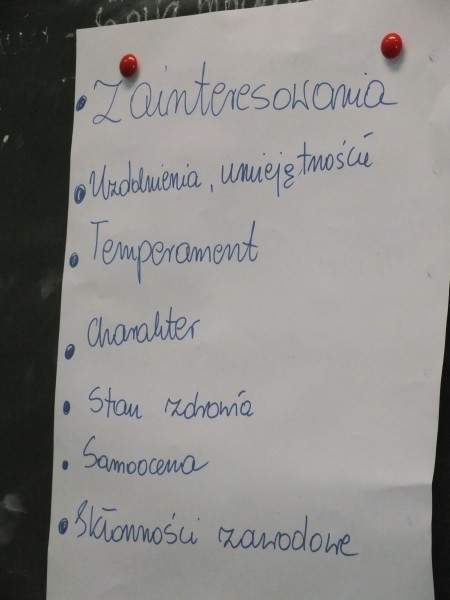 • Zainteresowania
• Uzdolnienia, umiejętności
• Temperament
• Charakter
• Stan zdrowia
• Samoocena
• Skłonności zawodowe